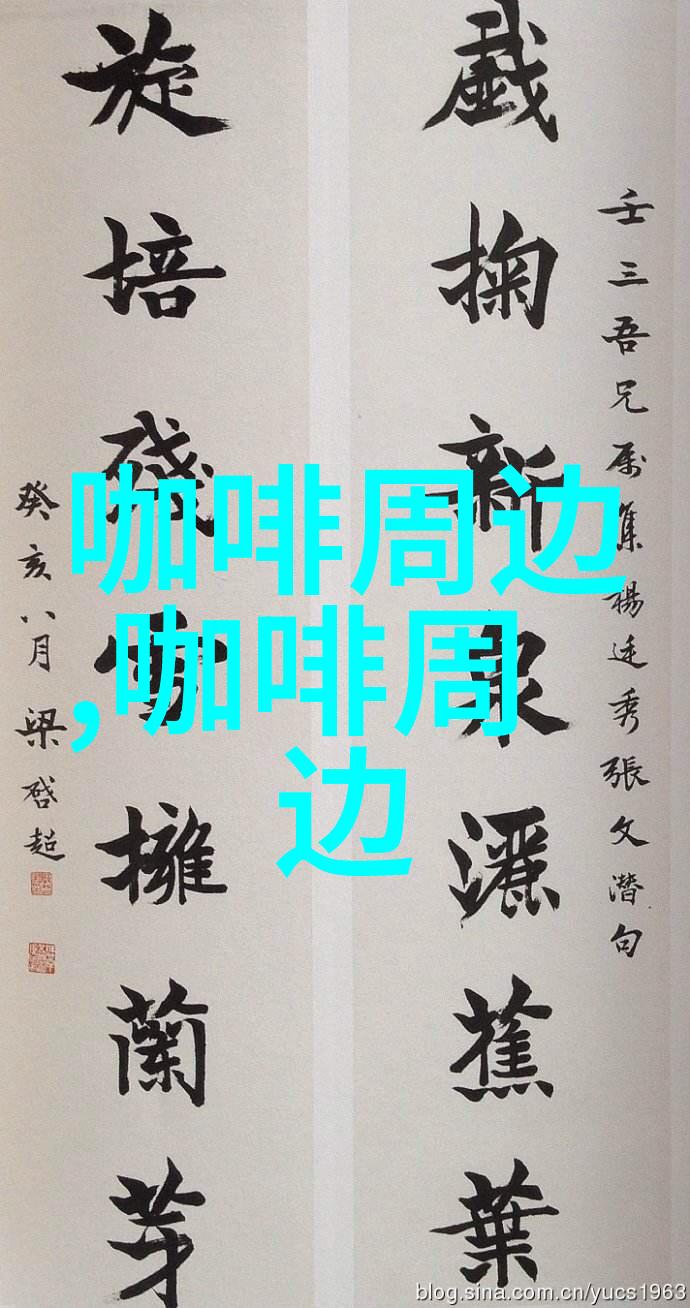 壬三吾兄属集楊廷秀張文潛句
戲掬新泉灑蕉葉
旋培殘雪擁蘭芽
癸亥八月梁啓超
咖啡周边
,咖啡周
边
blog.sina.com.cn/yucs1963